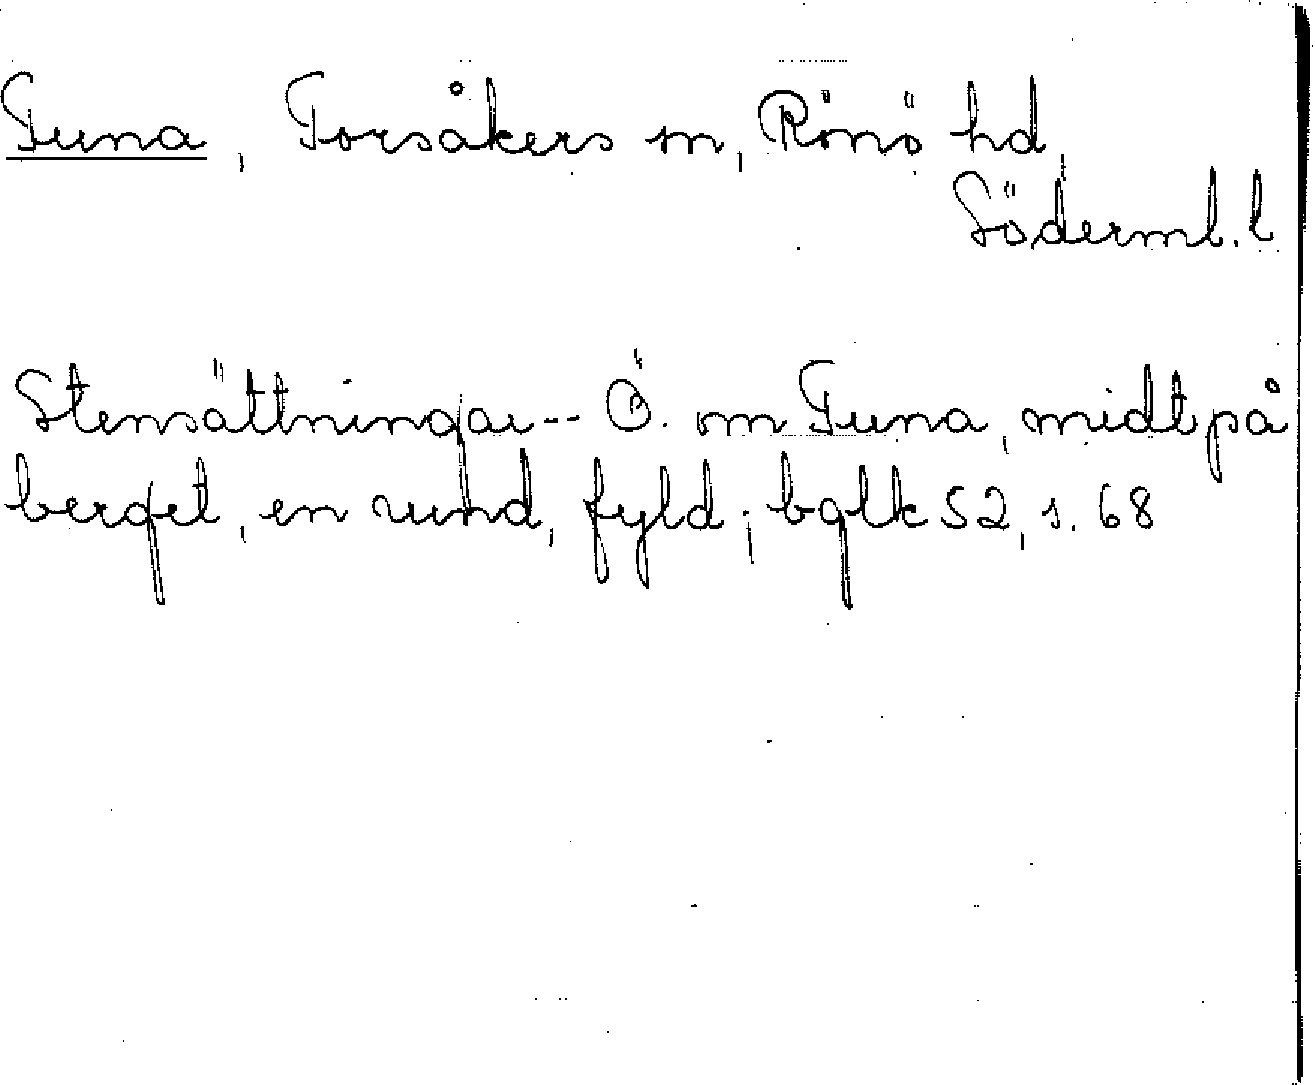 Tuna, Torsåkers sn, Rönö hd,
Söderml. l
Stensättningar -- Ö. om Tuna, midt på
berget, en rund, fyld; bglk 52, s. 68